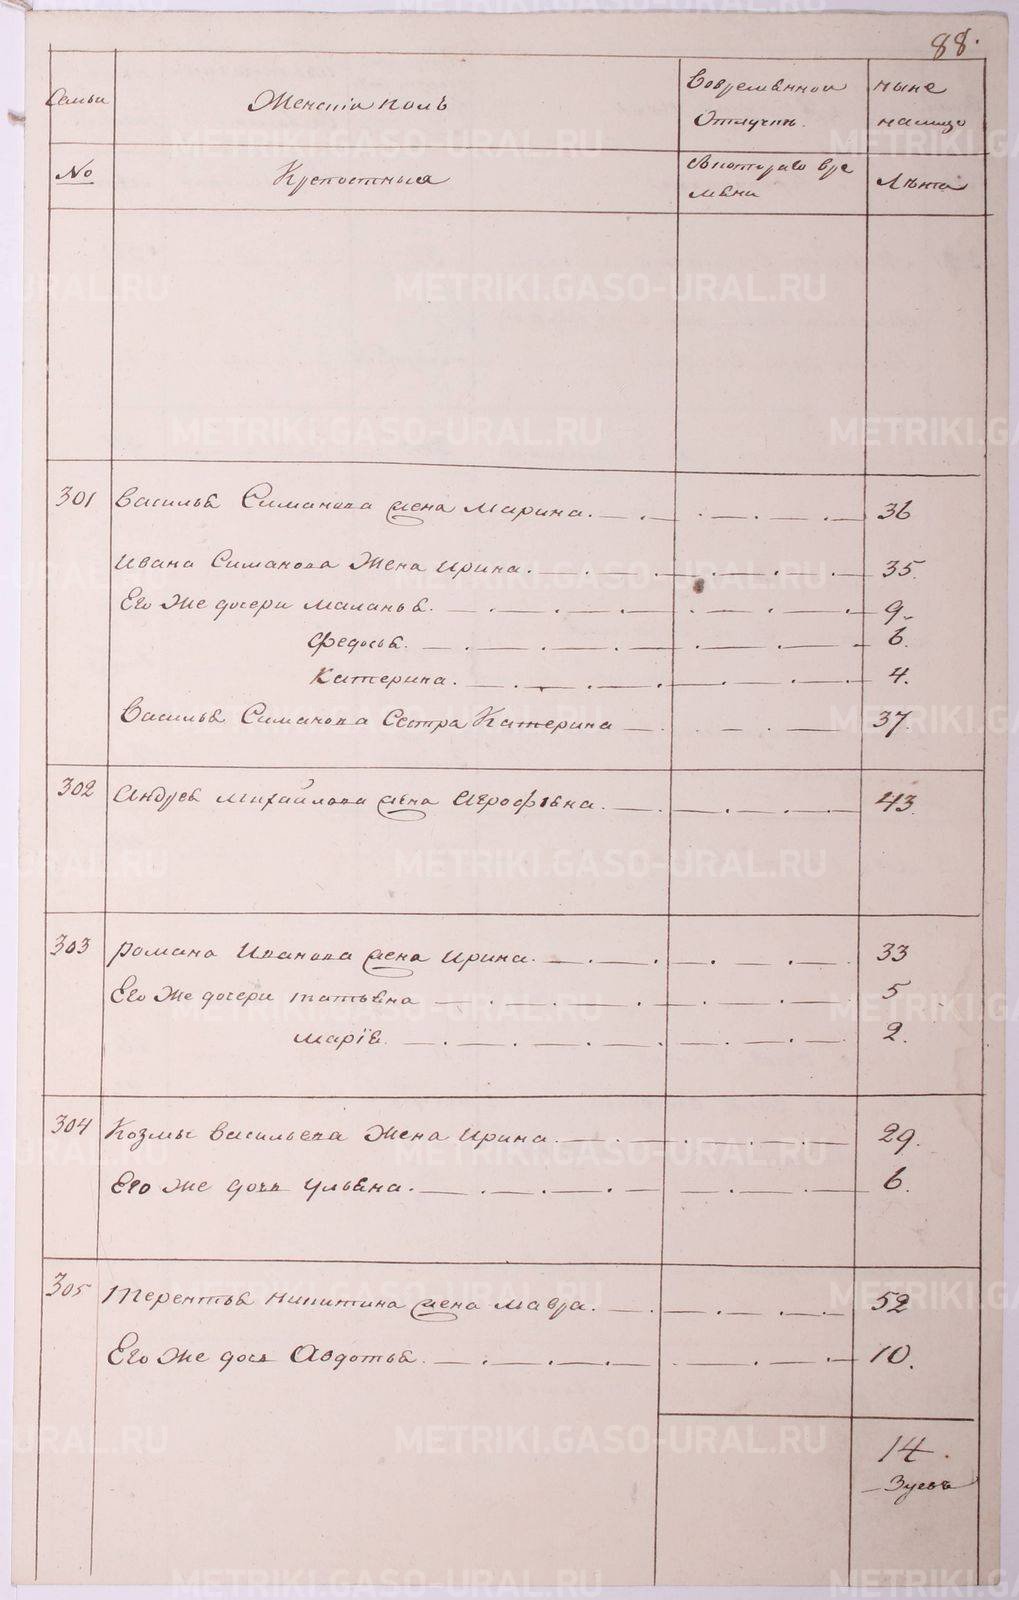 88.
Семьи
Женскiй полъ
Вовременной
Отлучке.
ныне
налицо
№
Крепостныя
Скоторого вре
мени
Лѣта
301 Василья Симанова жена Марина. 36
Ивана Симанова жена Ирина. 35.
Его же дочери Маланья. 9.
Федосья. 6.
Катерина. 4.
Василья Симанова сестра Катерина 37.
302 Андрея Михайлова жена Агрофѣна. 43.
303 Романа Иванова жена Ирина. 33
Его же дочери Татьяна 5
Марiя. 2.
304 Козмы Васильева жена Ирина. 29.
Его же дочь Ульяна. 6.
305 Терентья Никитина жена Мавра. 52
Его же дочь Авдотья. 10.
14.
Зуевъ
METRIKI.GASO-URAL.RU